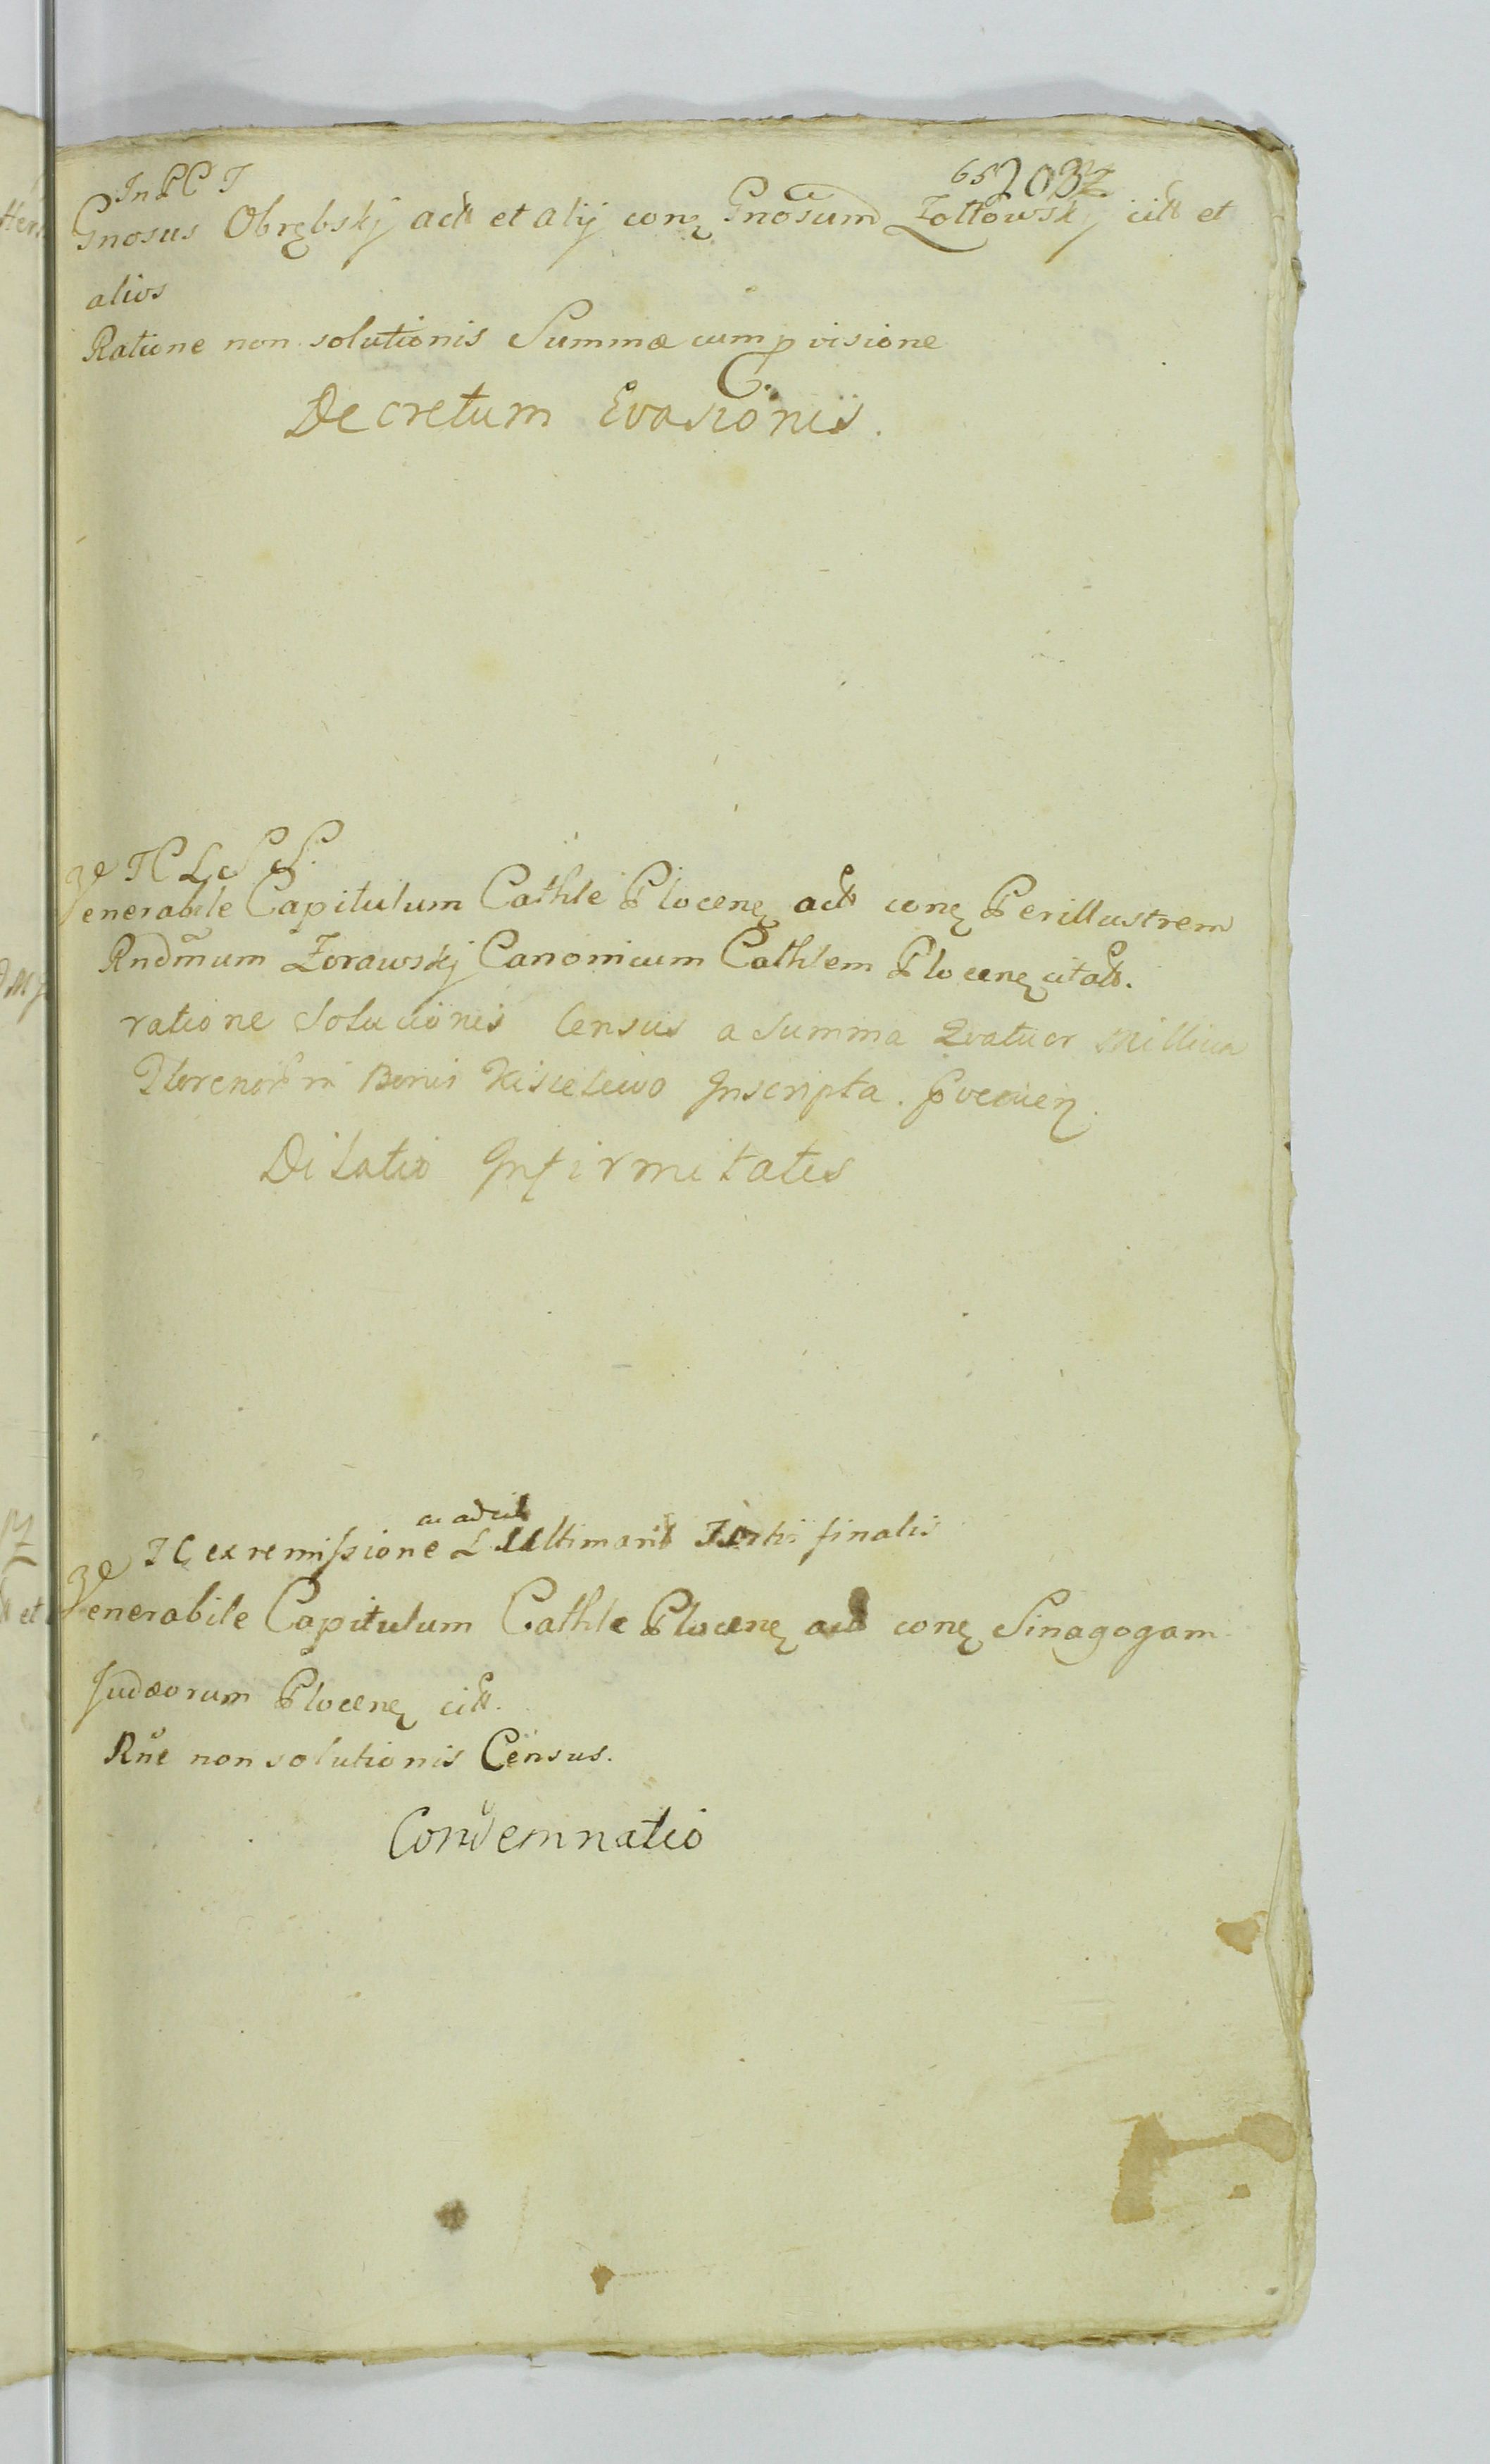 65 203
In P C T
Gnosus Obrębskj act et alij conę Gnosum Zołtowskj citt et
alios
Ratione non solutionis Summæ cum pvisione
C.
Decretum Evasionis.
ze TC L S S.
Venerabile Capitulum Cathle Plocenę act conę Perillustrem
Rndmum Zorawskj Canonicum Cathlem Plocenę citatt.
ratione Solucionis Census a Summa Quatuor Millium
Florenor in Bonis Kisielewo Inscripta. pvenien.
Dilatio Infirmitatis
ac ad
ze TC ex remissione Ultimarit finalis
Venerabile Capitulum Cathle Plocenę act conę Sinagogam
Judæorum Plocenę citt.
Rne non solutionis Census.
Condemnatio